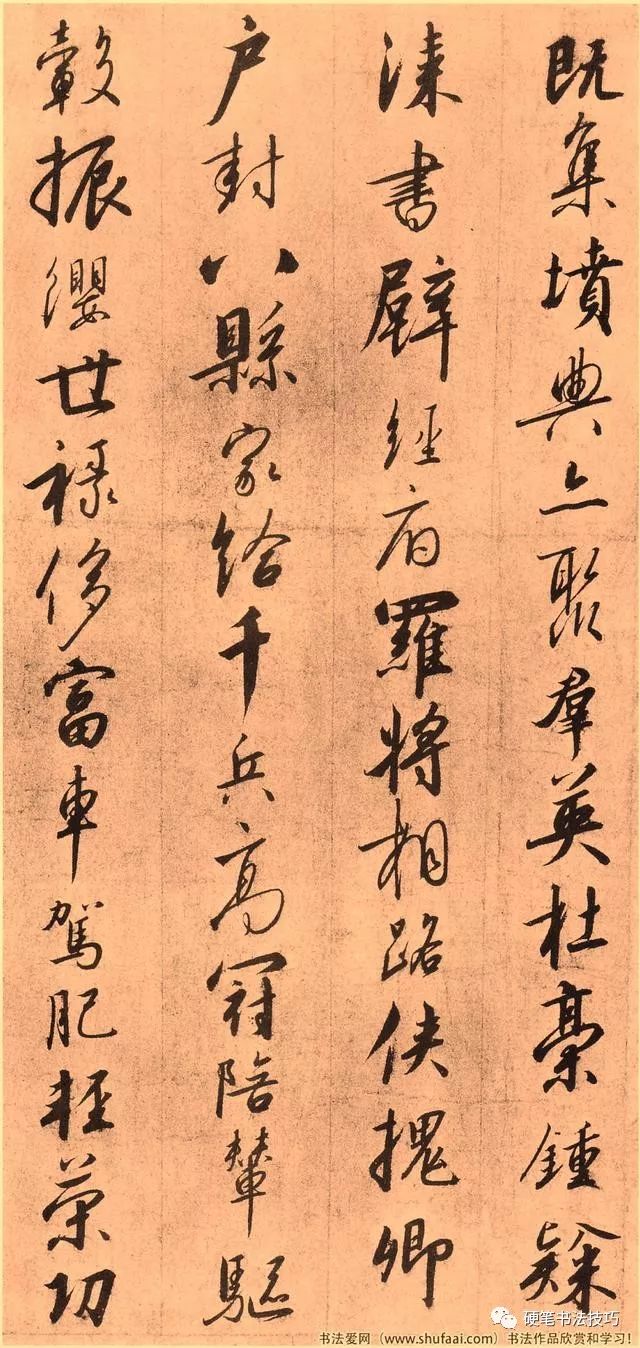 既集墳典亦聚羣英杜稾鍾隸
漆書壁經府羅將相路俠槐卿
户封八縣家給千兵高冠陪輦驅
轂振纓世祿侈富車駕肥輕策功
硬笔书法技巧
书法爱网（www.shufaai.com）书法作品欣赏和学习！